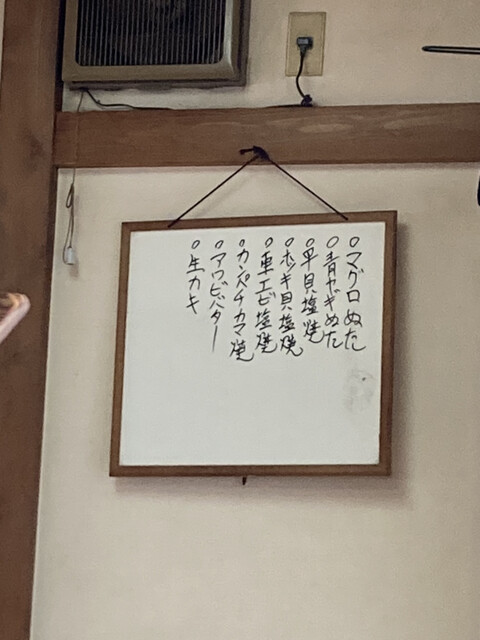 ○マグロぬた
○青ヤギぬた
○平貝塩焼
○ホッキ貝塩焼
○車エビ塩焼
○カンパチカマ焼
○アワビバター
○生カキ